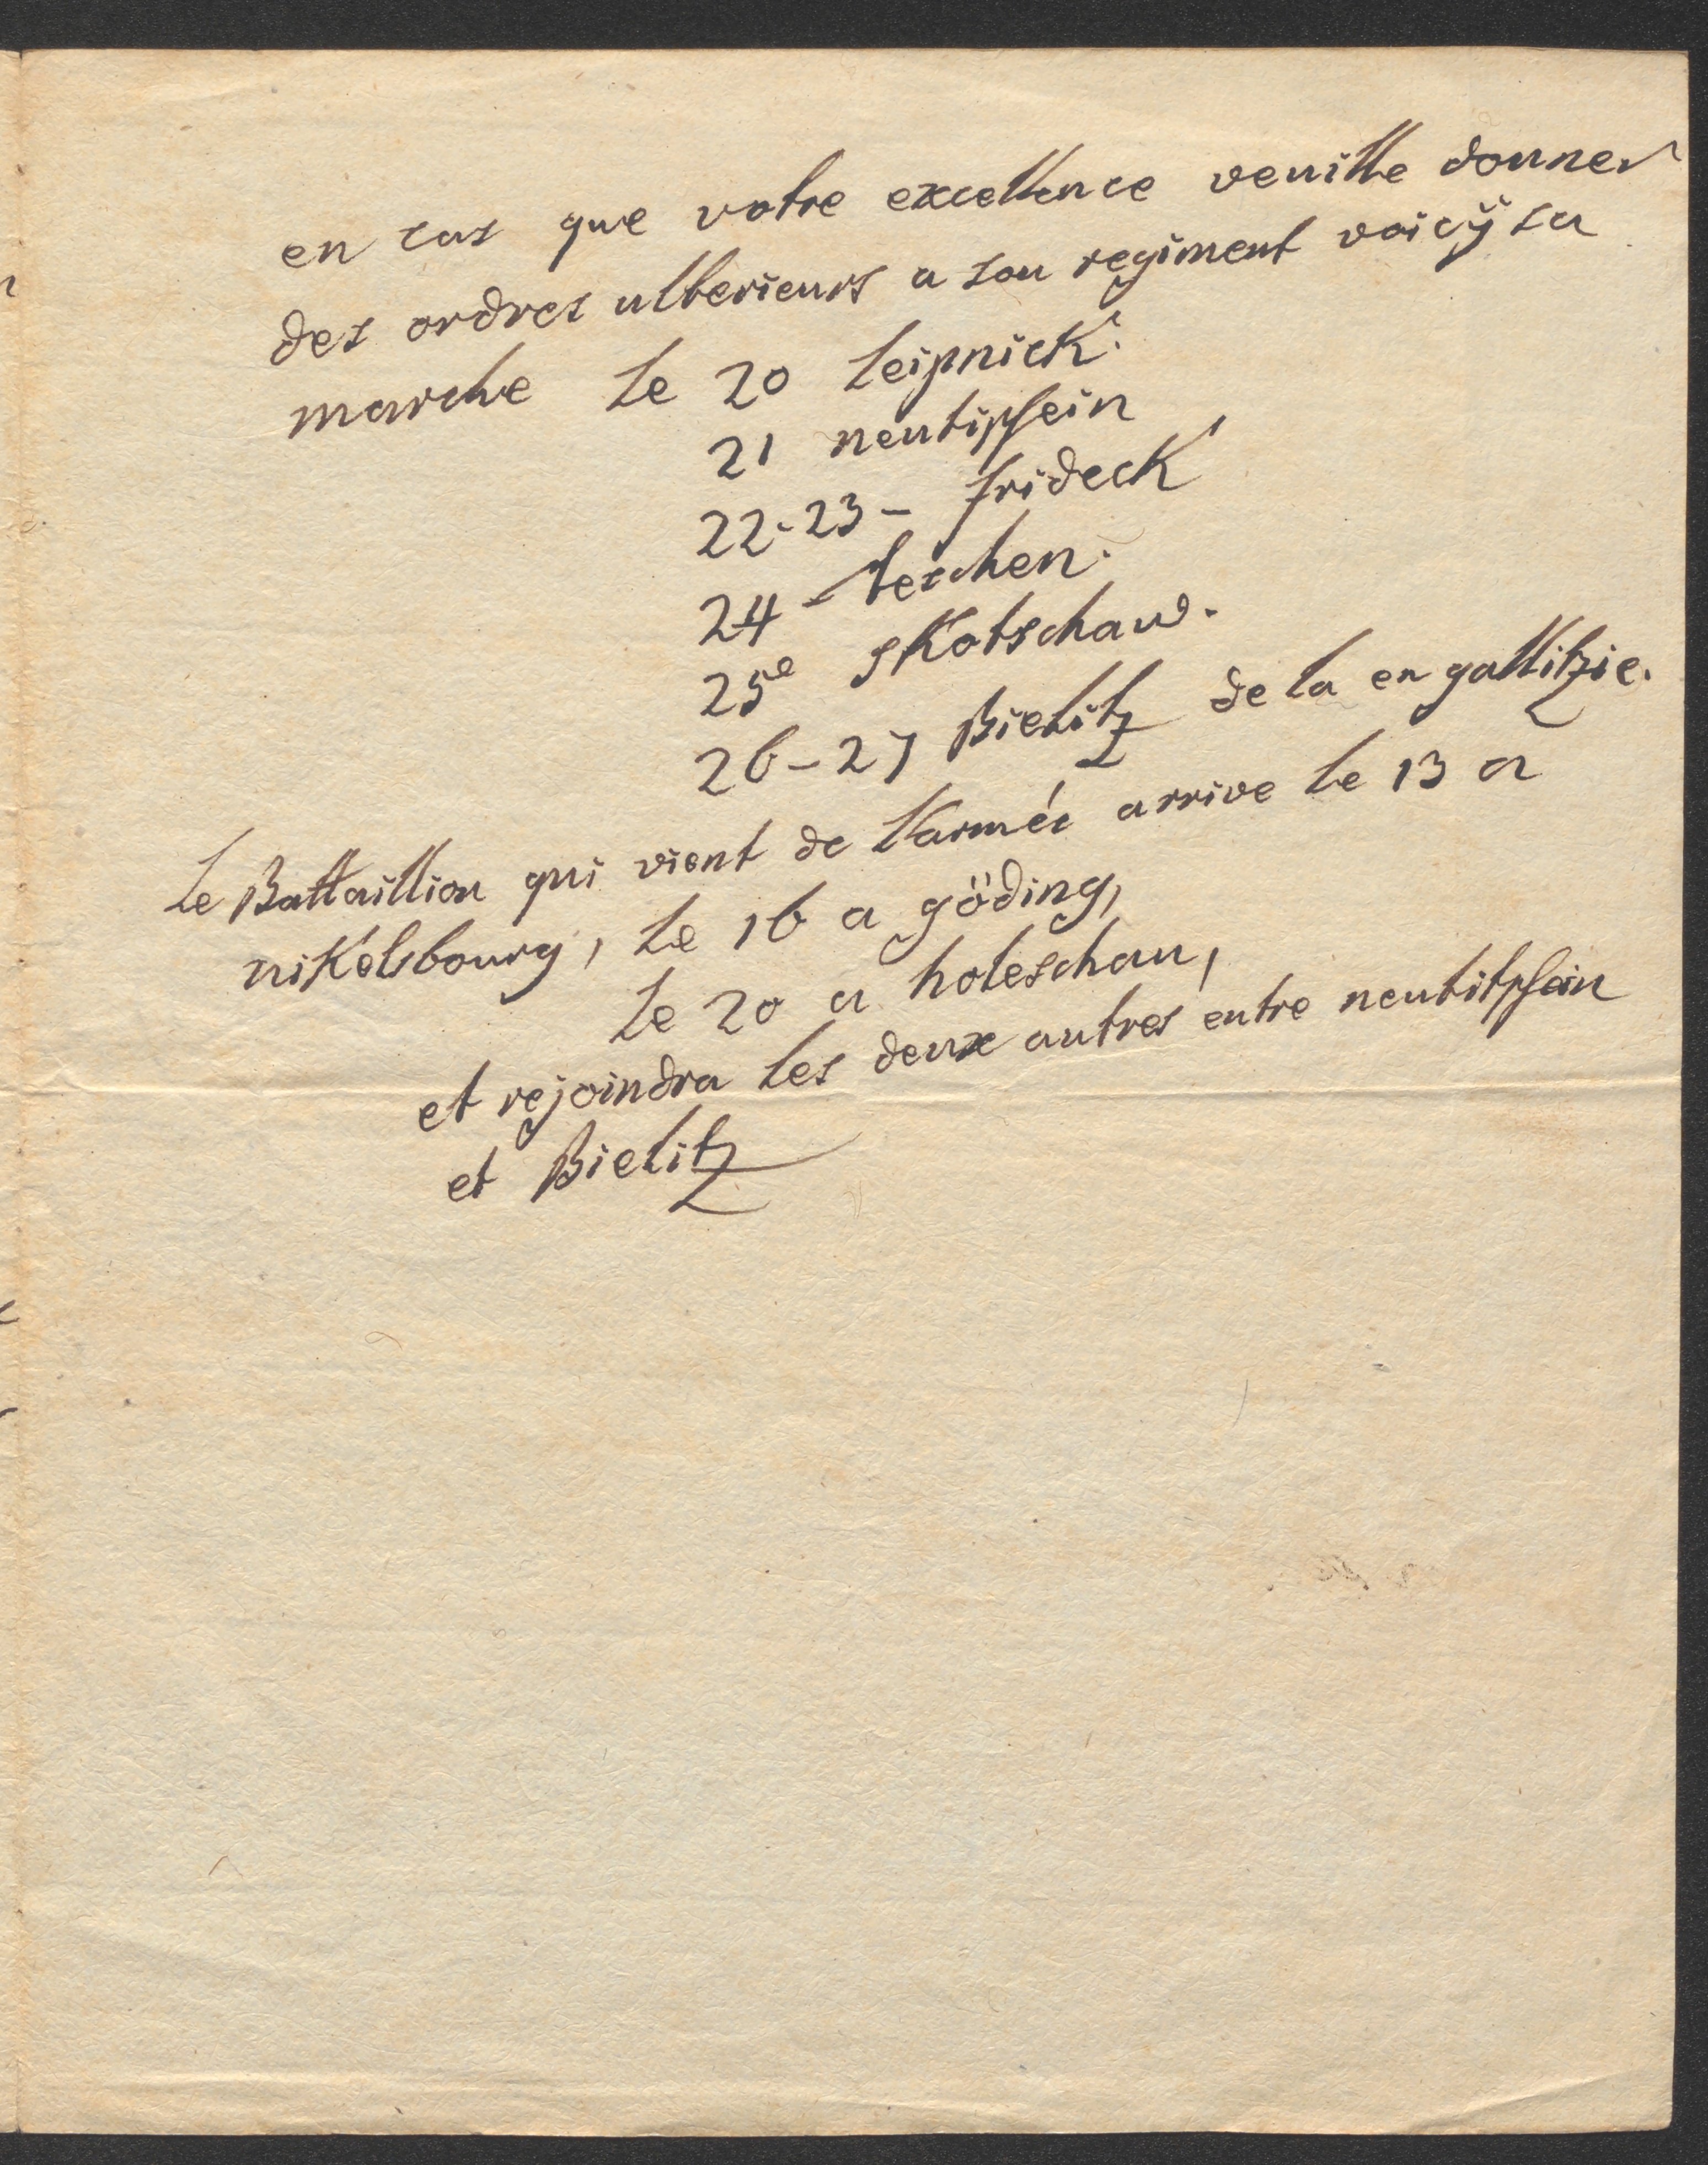 en cas que votre excellence veuille donner
des ordres ulterieurs a son regiment voicÿ sa
marche le 20 Leipnick.
21 neutipsein
22-23- frideck
24 - teschen.
25e Skotschaw.
26-27 Bielitz de la en gallitzie.
Le Battaillion qui vient de l'armée arrive le 13 a
nikelsbourg, le 16 a göding,
le 20 a holeschau,
et rejoindra les deux autres entre neutitpsein
et Bielitz